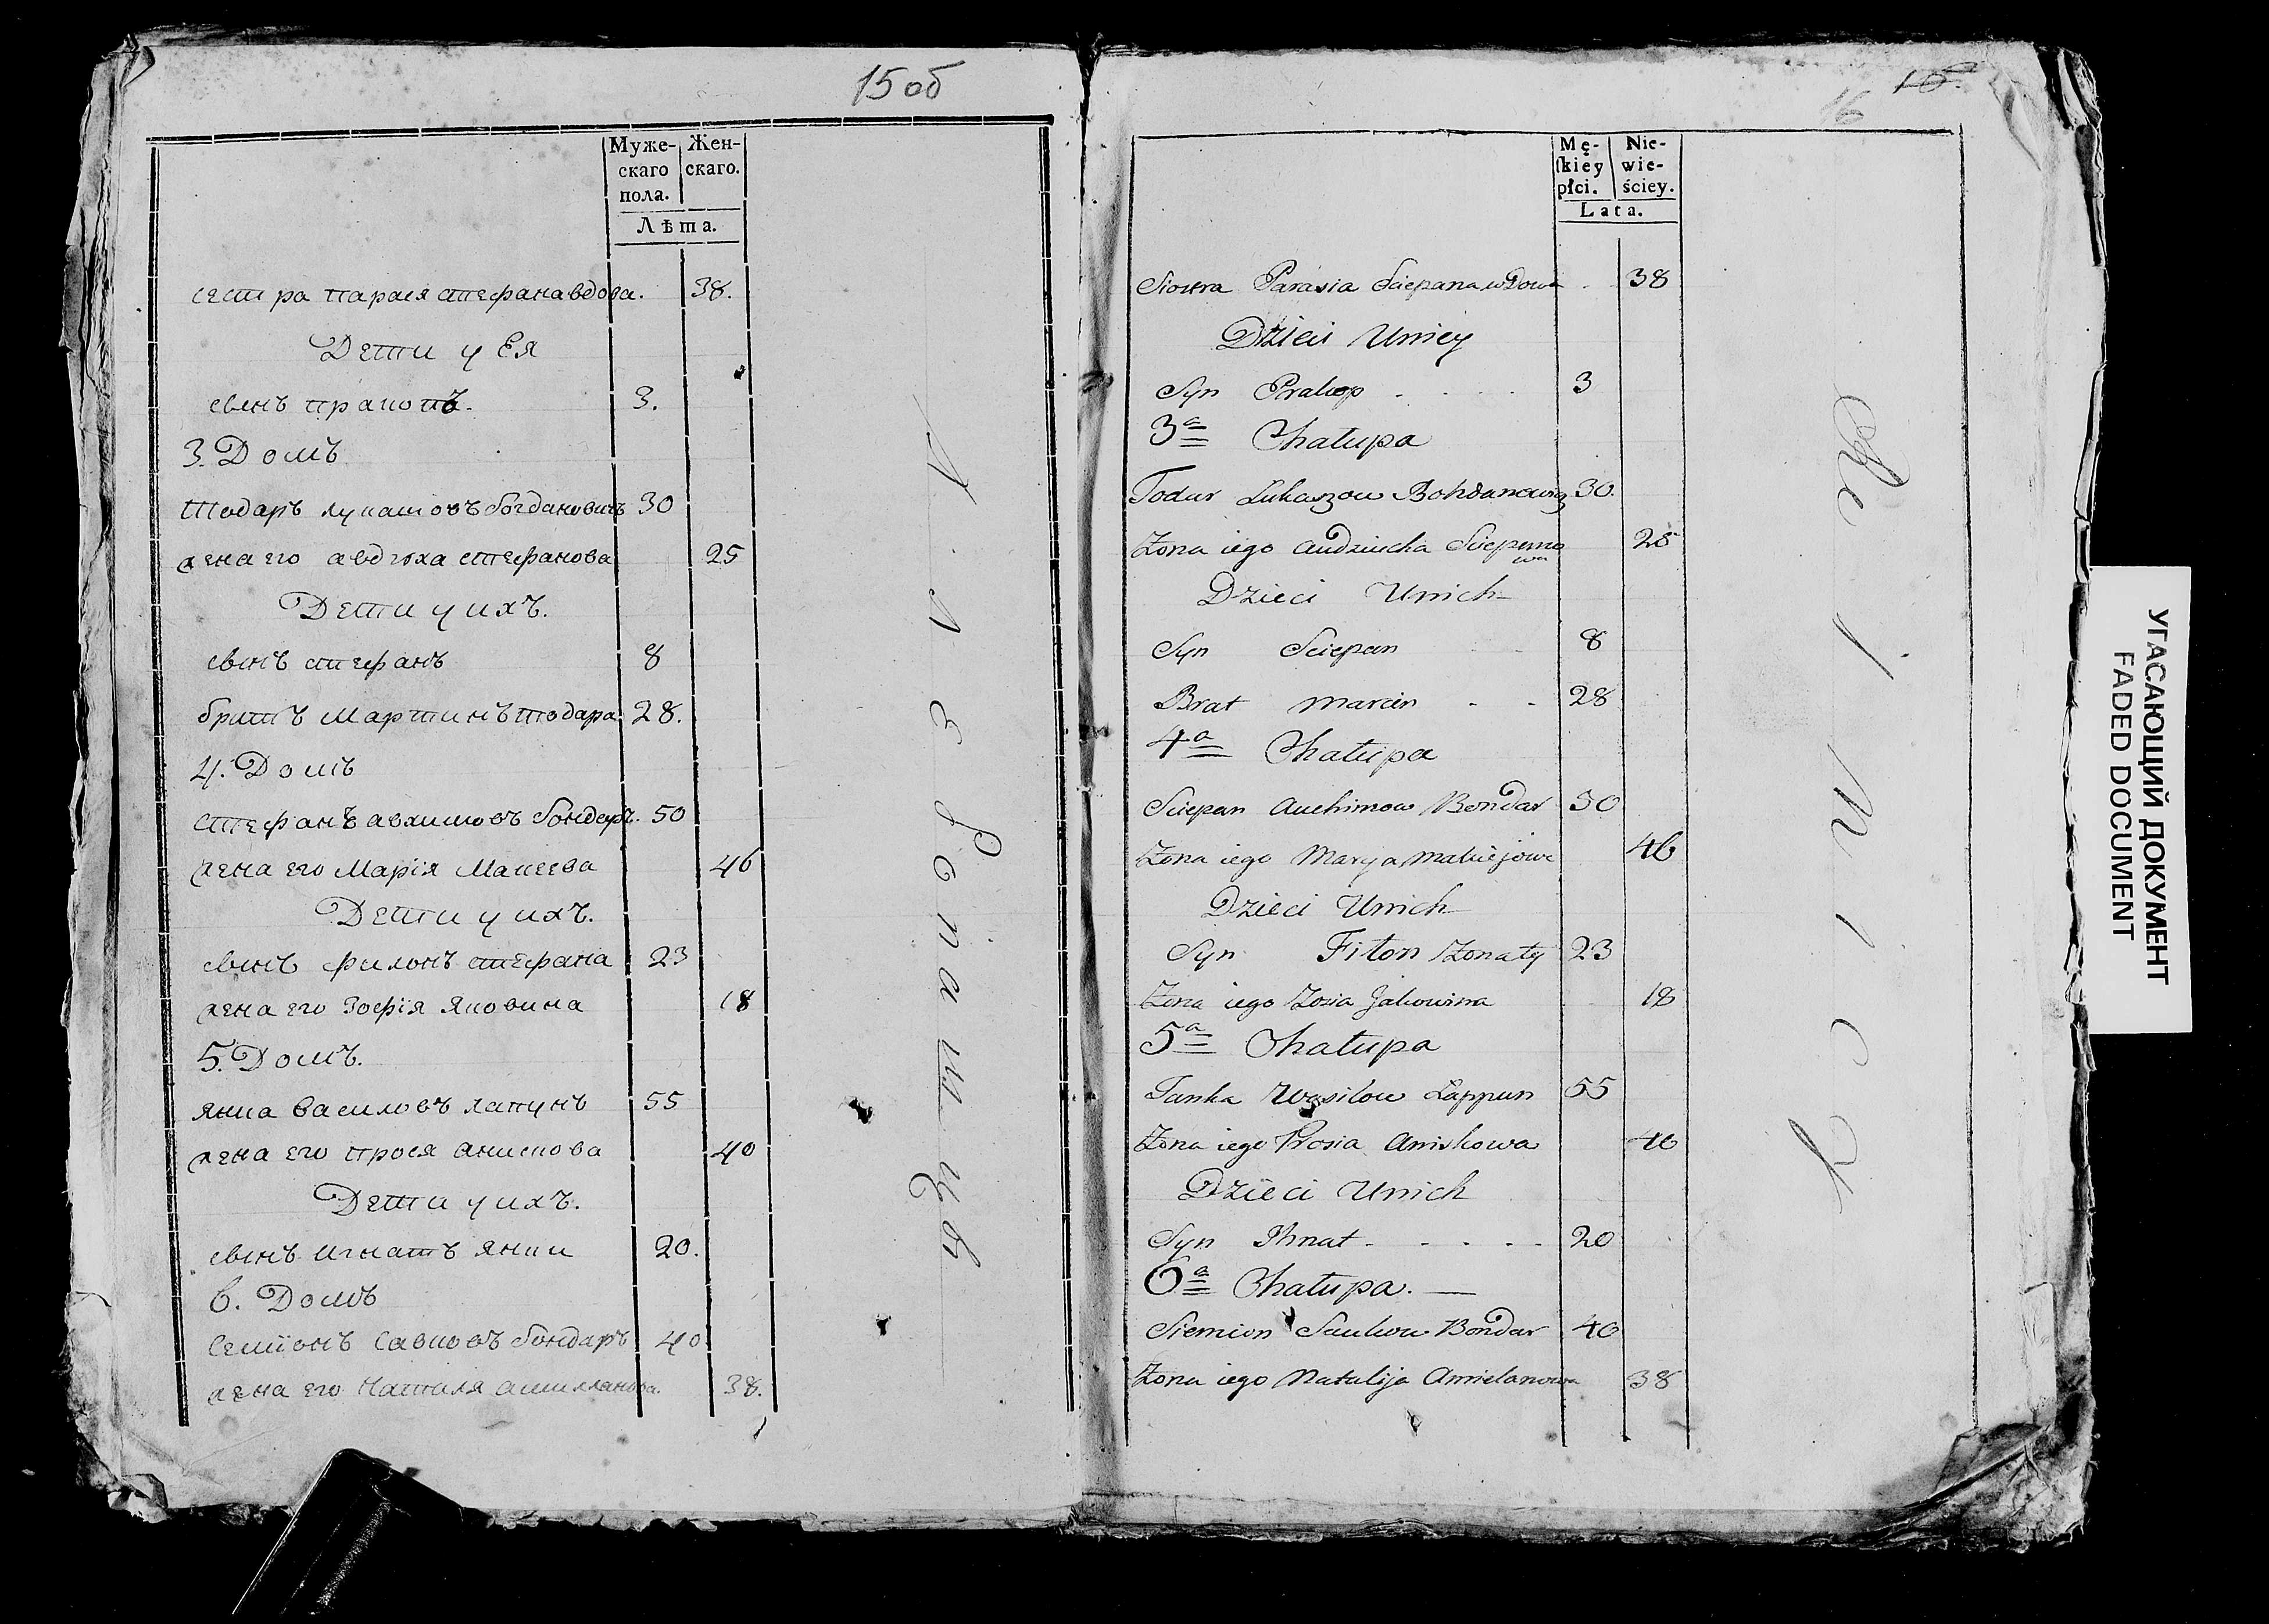 15 об
Муже-
скаго
пола.
Жен-
скаго.
Лѣта.
сестра парася стефана вдова. 38.
Дети у Ея
сынъ пракопъ. 3.
3. Домъ
Тодаръ лукашовъ богдановичъ 30
жена его авдюха стефанова 25
Дети у ихъ.
сынъ стефанъ 8
братъ Мартинъ тодара 28.
4. Домъ
стефанъ авхимовъ бондаръ. 50
жена его Марія Макеева 46
Дети у ихъ.
сынъ филонъ стефана 23
жена его Зофія Яковина 18
5. Домъ.
янка василовъ лапунъ 55
жена его прося анискова 40
Дети у ихъ.
сынъ игнатъ янки 20.
6. Домъ
Семіонъ Савковъ бондаръ 40.
жена его Наталя амиллянова. 38.
16
Mę-
skiey
płci.
Nie-
wie-
ściey.
Lata.
Siostra Parasia Sciepana wdowa 38
Dzieci Uniey
Syn Prakop 3
3a Chałupa
Todur Łukaszow Bohdanowicz 30.
Żona iego Audziucha Sciepano
wa 25
Dzieci Unich
Syn Sciepan 8
Brat Marcin 28
4a Chałupa
Sciepan Auchimow Bondar 50
Żona iego Marya Makiejowa 46
Dzieci Unich
Syn Fiłon Żonaty 23
Żona iego Zosia Jakowina 18
5a Chałupa
Janka Wasilow Łappun 55
Żona iego Prosia Aniskowa 40
Dzieci Unich
Syn Ihnat 20
6a Chałupa.
Siemion Saukow Bondar 40
Żona iego Natalija Amielanowa 38
УГАСАЮЩИЙ ДОКУМЕНТ
FADED DOCUMENT